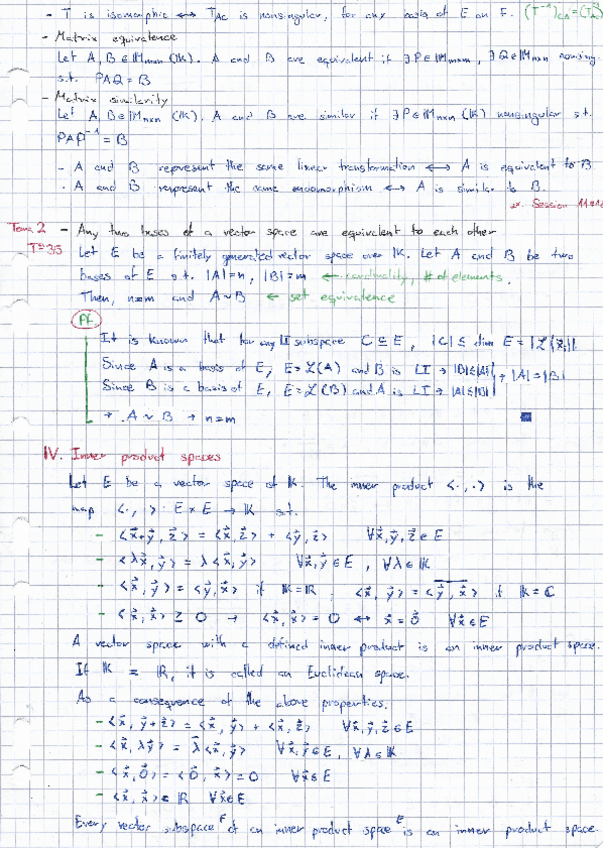 - T is isomorphic ⟷ T_AC is nonsingular, for any basis of E on F. (T⁻¹)_CA = (T_AC)⁻¹
- Matrix equivalence
Let A, B ∈ M_mxn (K). A and B are equivalent if ∃P∈M_mxm, ∃Q∈M_nxn nonsing.
s.t. PAQ = B
- Matrix similarity
Let A, B ∈ M_nxn (K). A and B are similar if ∃P∈M_nxn (K) nonsingular s.t.
PAP⁻¹ = B
- A and B represent the same linear transformation ⟷ A is equivalent to B
- A and B represent the same endomorphism ⟷ A is similar to B.
Session
Tema 2 - Any two bases of a vector space are equivalent to each other
Let E be a finitely generated vector space over K. Let A and B be two
bases of E s.t. |A|=n, |B|=m ← cardinality, # of elements.
Then, n=m and A~B ← set equivalence
Pf
It is known that for any LI subspace C ⊆ E, |C| ≤ dim E
Since A is a basis of E, E = L(A) and B is LI → |B|≤|A|
Since B is a basis of E, E = L(B) and A is LI → |A|≤|B| → |A|=|B|
→ A ~ B → n=m
IV. Inner product spaces
Let E be a vector space of K. The inner product <·,·> is the
map <·,·> : E x E → K s.t.
- <x⃗+y⃗, z⃗> = <x⃗, z⃗> + <y⃗, z⃗> ∀x⃗, y⃗, z⃗ ∈ E
- <λx⃗, y⃗> = λ<x⃗, y⃗> ∀x⃗, y⃗ ∈ E, ∀λ ∈ K
- <x⃗, y⃗> = <y⃗, x⃗> if K=R, <x⃗, y⃗> = \overline{<y⃗, x⃗>} if K = C
- <x⃗, x⃗> ≥ 0 → <x⃗, x⃗> = 0 ⟷ x⃗ = 0⃗ ∀x⃗ ∈ E
A vector space with a defined inner product is an inner product space.
If K = R, it is called an Euclidean space.
As a consequence of the above properties.
- <x⃗, y⃗+z⃗> = <x⃗, y⃗> + <x⃗, z⃗> ∀x⃗, y⃗, z⃗ ∈ E
- <x⃗, λy⃗> = \overline{λ}<x⃗, y⃗> ∀x⃗, y⃗ ∈ E, ∀λ ∈ K
- <x⃗, 0⃗> = <0⃗, x⃗> = 0 ∀x⃗ ∈ E
- <x⃗, x⃗> ∈ R ∀x⃗ ∈ E
Every vector subspace F of an inner product space E is an inner product space.